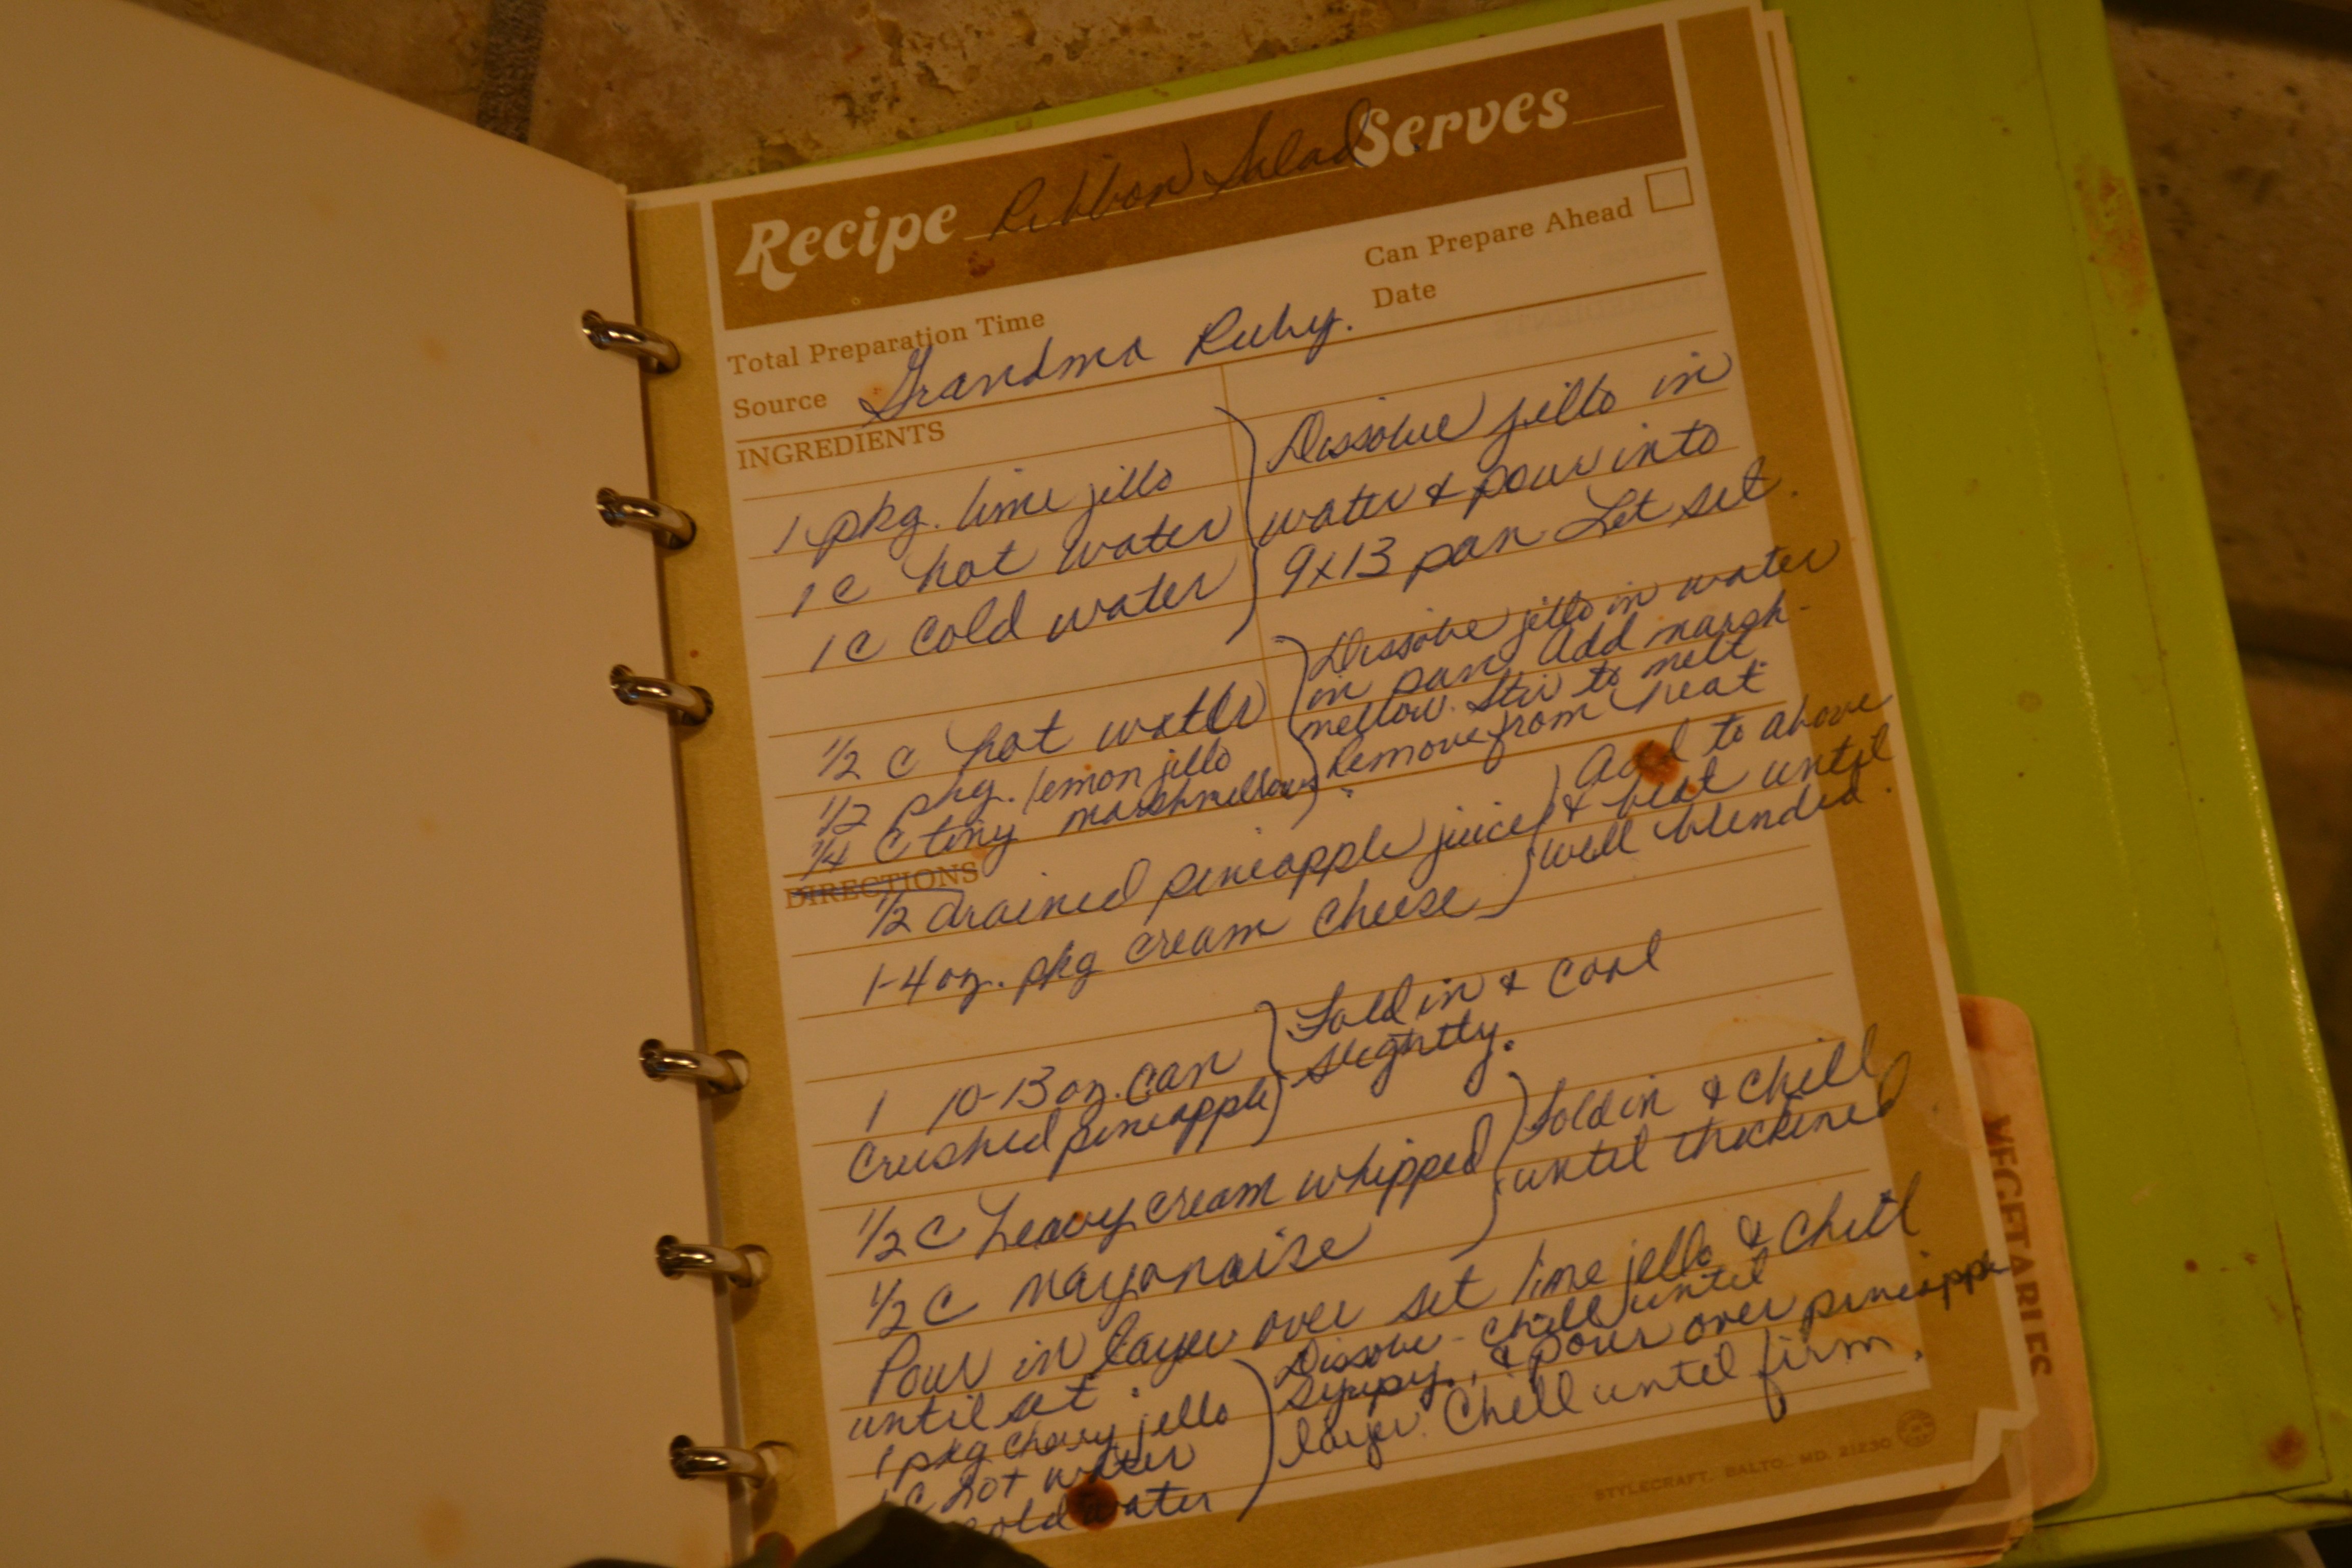 Recipe Ribbon Salad Serves
Can Prepare Ahead
Total Preparation Time
Date
Source Grandma Ruby.
INGREDIENTS
1 pkg. lime jello
1 c hot water
1 c cold water
Dissolve jello in
water & pour into
9x13 pan. Let set.
1/2 c hot water
1/2 pkg. lemon jello
1/4 c tiny marshmellows
Dissolve jello in water
in pan, Add marsh-
mellow. Stir to melt
Remove from heat
DIRECTIONS
1/2 drained pineapple juice
1-4 oz. pkg cream cheese
Add to above
& beat until
well blended.
1 10-13 oz. can
crushed pineapple
Fold in & cool
slightly.
1/2 c heavy cream whipped
1/2 c mayonaise
Fold in & chill
until thickened
Pour in layer over set lime jello & chill
until set.
1 pkg cherry jello
c hot water
cold water
Dissolve - chill until
syrupy, & pour over pineapple
layer. Chill until firm.
STYLECRAFT, BALTO., MD. 21230
VEGETABLES